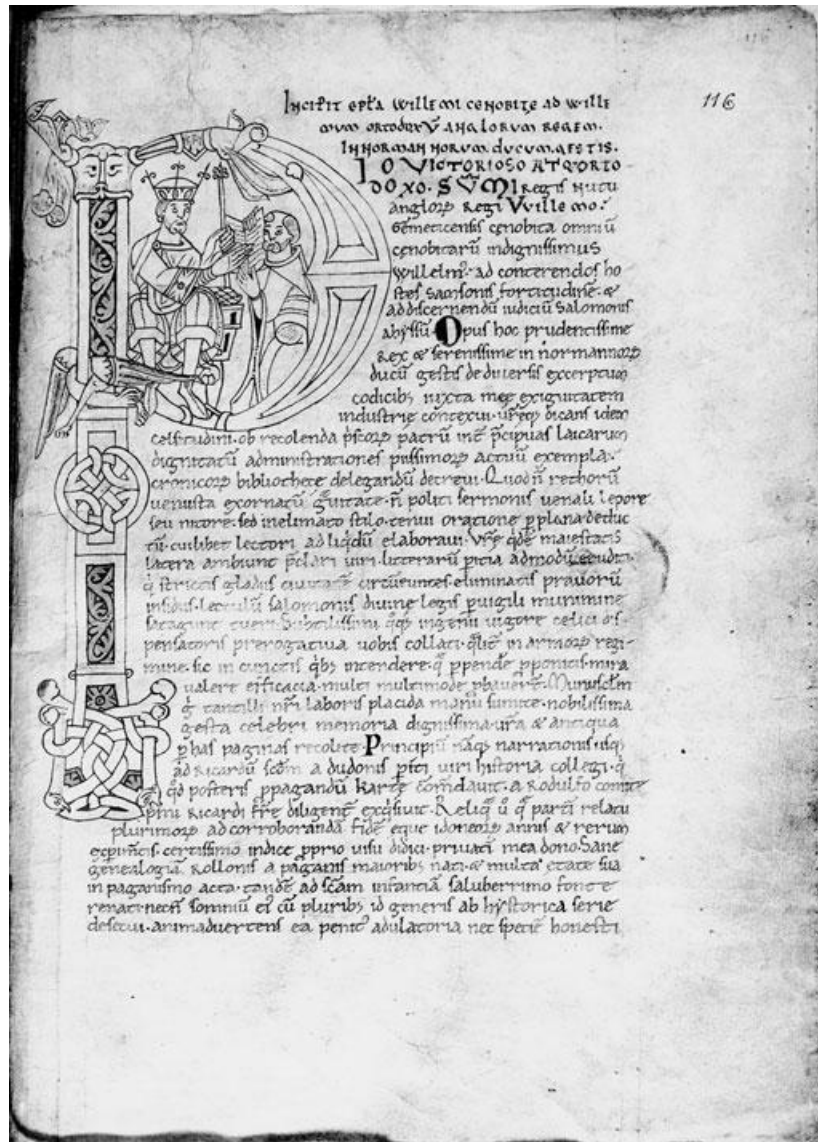 116
INCIPIT EPĽA WILLEMI CENOBITE AD WILLE
MUM ORTODOXŪ ANGLORUM REGEM.
IN NORMANNORUM DUCUM GESTIS.
PIO VICTORIOSO ATQ ORTO
DOXO. SŪMI regis nutu
anglorꝝ regi Willemo.
Gemeticensis cenobita omniū
cenobitarū indignissimus
Willelmꝰ. ad conterendos ho
stes sansonis fortitudinē. &
ad discernendū iudiciū salomonis
abyssū. Opus hoc prudentissime
rex & serenissime in normannorꝝ
ducū gestis de diversis excerptum
codicibꝫ iuxta meę exiguitatem
industrię contexui. dicans idem
celsitudini. ob recolenda patrū laicarum
dignitatū administrationes piissimorꝝ actuū exempla.
cronicorꝝ bibliothece delegandū decrevi. Quod rethorū
venusta exornatū politi sermonis venali lepore
seu nitore. sed inelimato stilo. tenui oratione plana deduc
tū. cuilibet lectori ad elaboravi. maiestatis
latera ambiunt viri. litterarū admodū eruditi.
strictis gladiis civitatē eliminatis pravorū
insidiis. lectulū salomonis divine legis pvigili munimine
satagunt tueri. Subtilissimi ingenii vigore celici
pensatoris prerogativa vobis collati in armorꝝ regi
mine. sic in cunctis intendere. mira
valere efficacia. multi multimode
tantilli laboris placida manu sumite. nobilissima
gesta celebri memoria dignissima. & antiqua
has paginas recolite. Principiū narrationis
ad Ricardū a dudonis viri historia collegi.
posteris ppagandū karte a Rodulfo comite
Ricardi diligenter relatu
plurimorꝝ ad corroborandā fidē eque idoneorꝝ annis & rerum
certissimo indice pprio visu didici. privati mea dono. Sane
genealogiā Rollonis a paganis maioribꝫ nati. & multa etate sua
in paganismo acta. tandē ad infantiā saluberrimo fonte
renati. somniū cū pluribꝫ id generis ab hystorica serie
desecui. animadvertens ea adulatoria nec speciē honesti